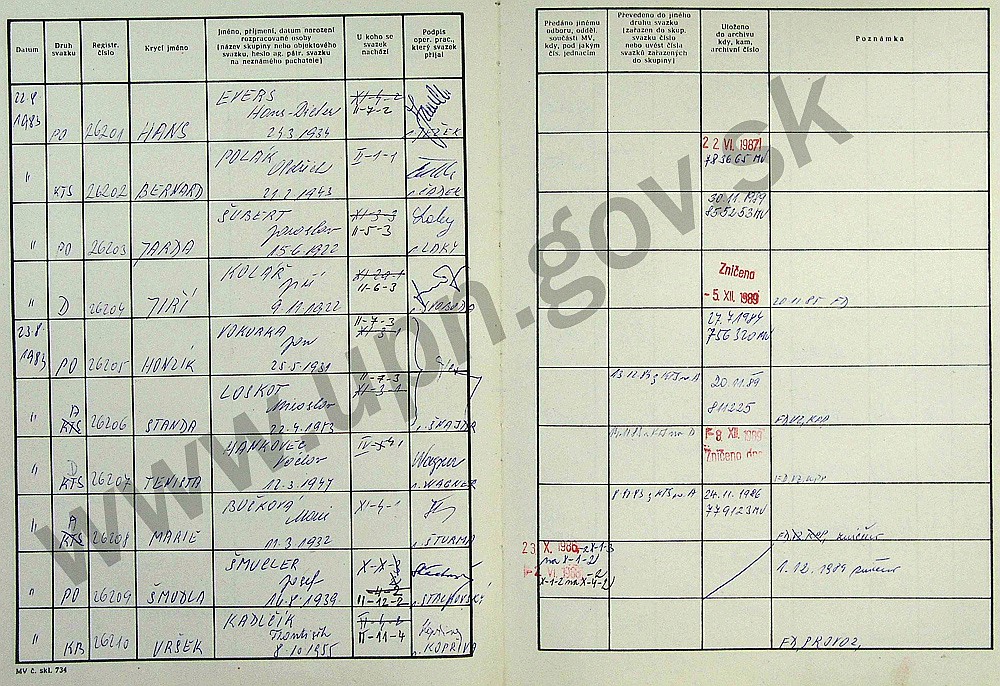 Datum
Druh svazku
Registr. číslo
Krycí jméno
Jméno, příjmení, datum narození
rozpracované osoby
(název skupiny nebo objektového
svazku, heslo ag. pátr. svazku
na neznámého pachatele)
U koho se
svazek
nachází
Podpis
oper. prac.,
který svazek
přijal
Předáno jinému
odboru, odděl.
součásti MV,
kdy, pod jakým
čís. jednacím
Převedeno do jiného
druhu svazku
(zařazen do skup.
svazku číslo
nebo uvést čísla
svazků zařazených
do skupiny)
Uloženo
do archivu
kdy, kam,
archivní číslo
Poznámka
22.8. 1983 PO 26201 HANS
EVERS
Hans-Dieter
XI-4-2
II-7-2
JEŽEK
" KTS 26202 BERNARD
POLÁK
Oldřich
21.2.1943
II-1-1
ČADEK
22 VI. 1987
783665 MV
" PO 26203 JARDA
ŠUBERT
Jaroslav
15.6.1922
XI-3-3
II-5-3
LAKY
30.11.1989
855253 MV
" D 26204 JIRÍ
KOLÁŘ
Jiří
9.11.1922
II-6-3
SVOBODA
Zničeno
- 5. XII. 1989
20.11.85 FD
23.8. 1983 PO 26205 HONZÍK
VOKURKA
Jan
25.5.1931
II-7-3
XI-3-1
27.4.1984
756320 MV
" A KTS 26206 STANDA
LOSKOT
Miroslav
22.4.1953
II-7-3
XI-3-1
ŠKAJDR
13.12.83 z KTS na A
20.11.89
811225
" D KTS 26207 TENISTA
HANKOVEC
Václav
12.3.1947
Wagner
WAGNER
- 8. XII. 1989
Zničeno dne
" A KTS 26208 MARIE
BUČKOVÁ
Marie
11.3.1932
XI-4-1
ŠTURMA
8.12.83 z KTS na A
24.11.1986
779123 MV
" PO 26209 ŠMUDLA
ŠMUCLER
Josef
16.8.1939
X-X-2
II-12-2
STACHOVSKÝ
23 X. 1986
na X-1-2
X-1-2 na X-4-2
1.12.1989 zničen
" KB 26210 VRŠEK
KADLČÍK
František
8.10.1955
II-11-4
KOPŘIVA
FD, PROVOZ,
MV č. skl. 734
www.upn.gov.sk